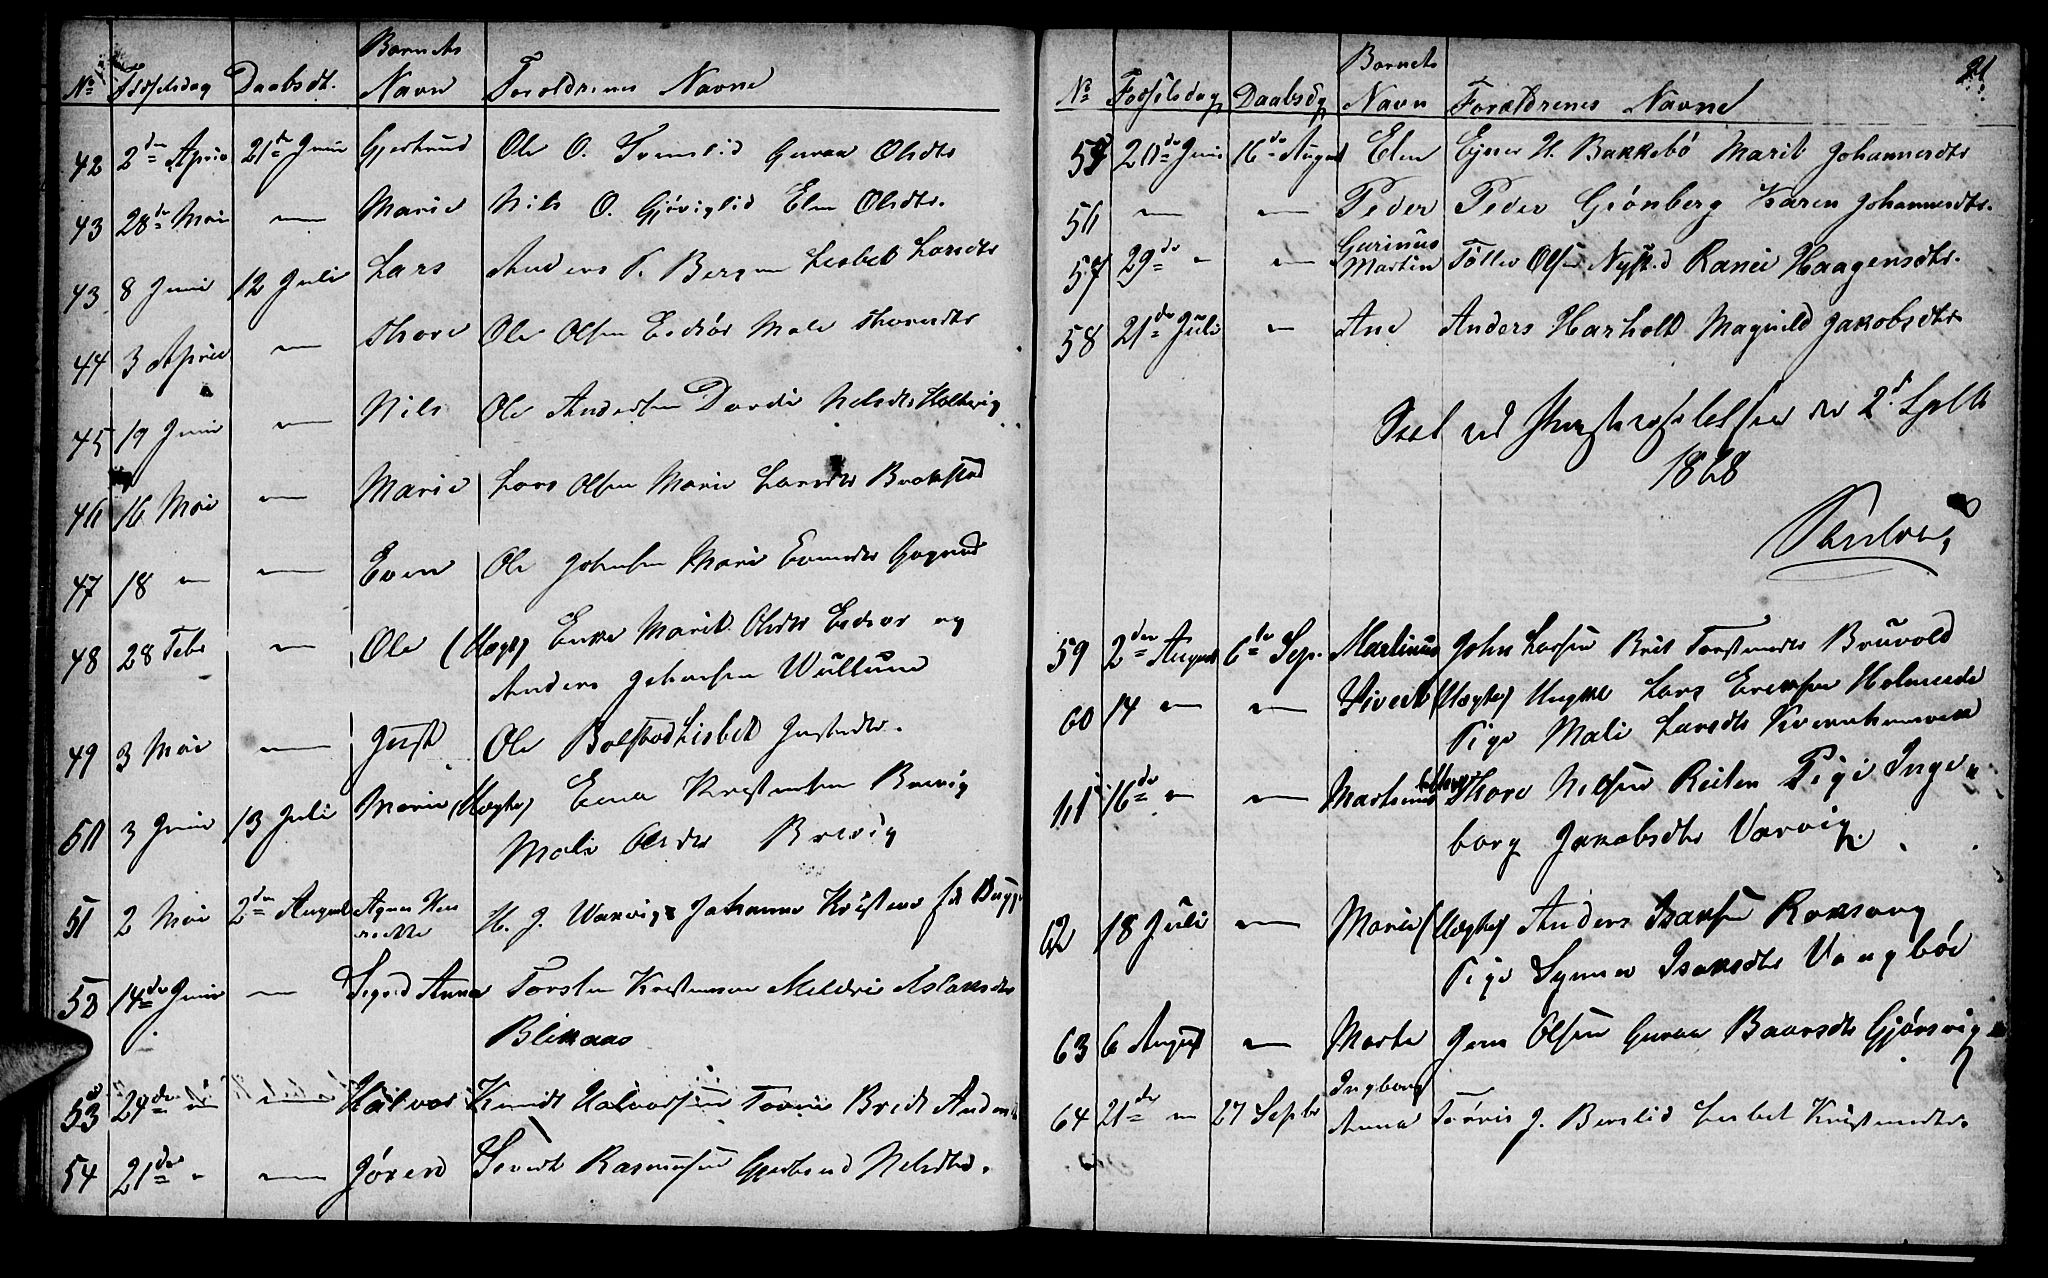 Barnets
No Fødselsdag Daabsdt. Navn Foreldrenes Navne
42 2den April 21de Juni Gjertrud Ole O. Guraa Olsdtr
43 28de Mai — Marie Nils O. Gjøviglid Elen Olsdtr.
43 8 Juni 12 Juli Lars Anders P. Bergen Lisbet Larsdtr
44 3 April — Thore Ole Olsen Esdsør Male Thoresdtr
45 19 Juni — Nils Ole Andersen Dordi Nelsdtr Holtevig
46 16 Mai — Marie Lars Olsen Marie Larsdtr Brokstad
47 18 — — Even Ole Johnsen Mari Evensdtr
48 28 Febr — Ole (Uægte) Enke Marit Olsdtr Esdsør og
Anders Johansen Wullum
49 3 Mai — Just Ole Bolstad Lisbet Justsdtr.
50 3 Juni 13 Juli Marie (Uægte) Kristensen Brevig
Mali Olsdtr Brevig
51 2 Mai 2den August Agnes Hen
riette H. J. Warvig Johanne Kristene fd Bugge
52 14de Juni — Sigrid Anna Torsten Kristensen Meldri Aslaksdtr
Blikaas
53 24de — — Halvor Knudt Halvorsen Brit Anders
54 21de — — Jøren Sivert Rasmusen Gjertrud Nelsdtr.
21
Barnets
No Fødselsdag Daabsdg Navn Foræeldrenes Navne
55 20de Juni 16de August Elen Ejner H. Bakkebø Marit Johannesdtr
56 — — Peder Peder Grønberg Karen Johannesdtr.
57 29de — — Gurinus
Martin Tølle Olsen Nystad Ranei Haagensdtr.
58 21de Juli — Ane Anders Harholt Magnild Jakobsdtr
Seet ved den 2d
1868
59 2den August 6te Sep. Martinus John Larsen Brit Torstensdtr Bruvold
60 14 — — Sivert (Uægte) Ungkl Lars Eriksen Holmeide
Pige Mali Larsdtr
61 16de — — Martinus Thore Nelsen Reiten Pige Inge
borg Jakobsdtr Varvig.
62 18 Juli — Marie (Uægte) Anders Isaksen
Pige Synner Isaksdtr Vangbøe
63 6 August — Marta Jens Olsen Guraa Baarsdtr Gjørvig
64 21de — 27 Septbr Ingborg
Anna Tørris J. Berslid Lisbet Kristensdtr.